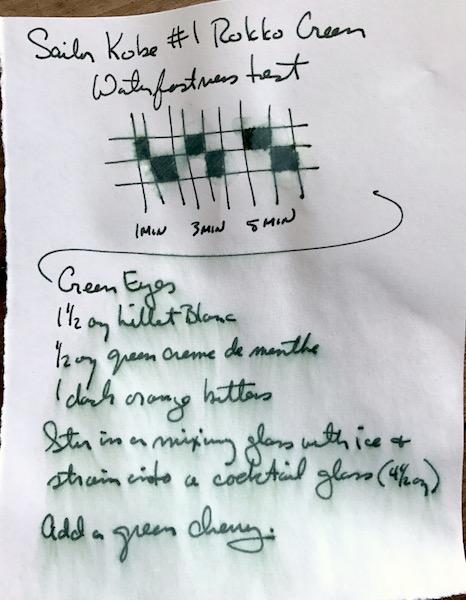 Sailor Kobe #1 Rokko Green
Waterfastness test
1 MIN 3 MIN 5 MIN
Green Eyes
1 1/2 oz Lillet Blanc
1/2 oz green creme de menthe
1 dash orange bitters
Stir in a mixing glass with ice &
strain into a cocktail glass (4 1/2 oz)
Add a green cherry.